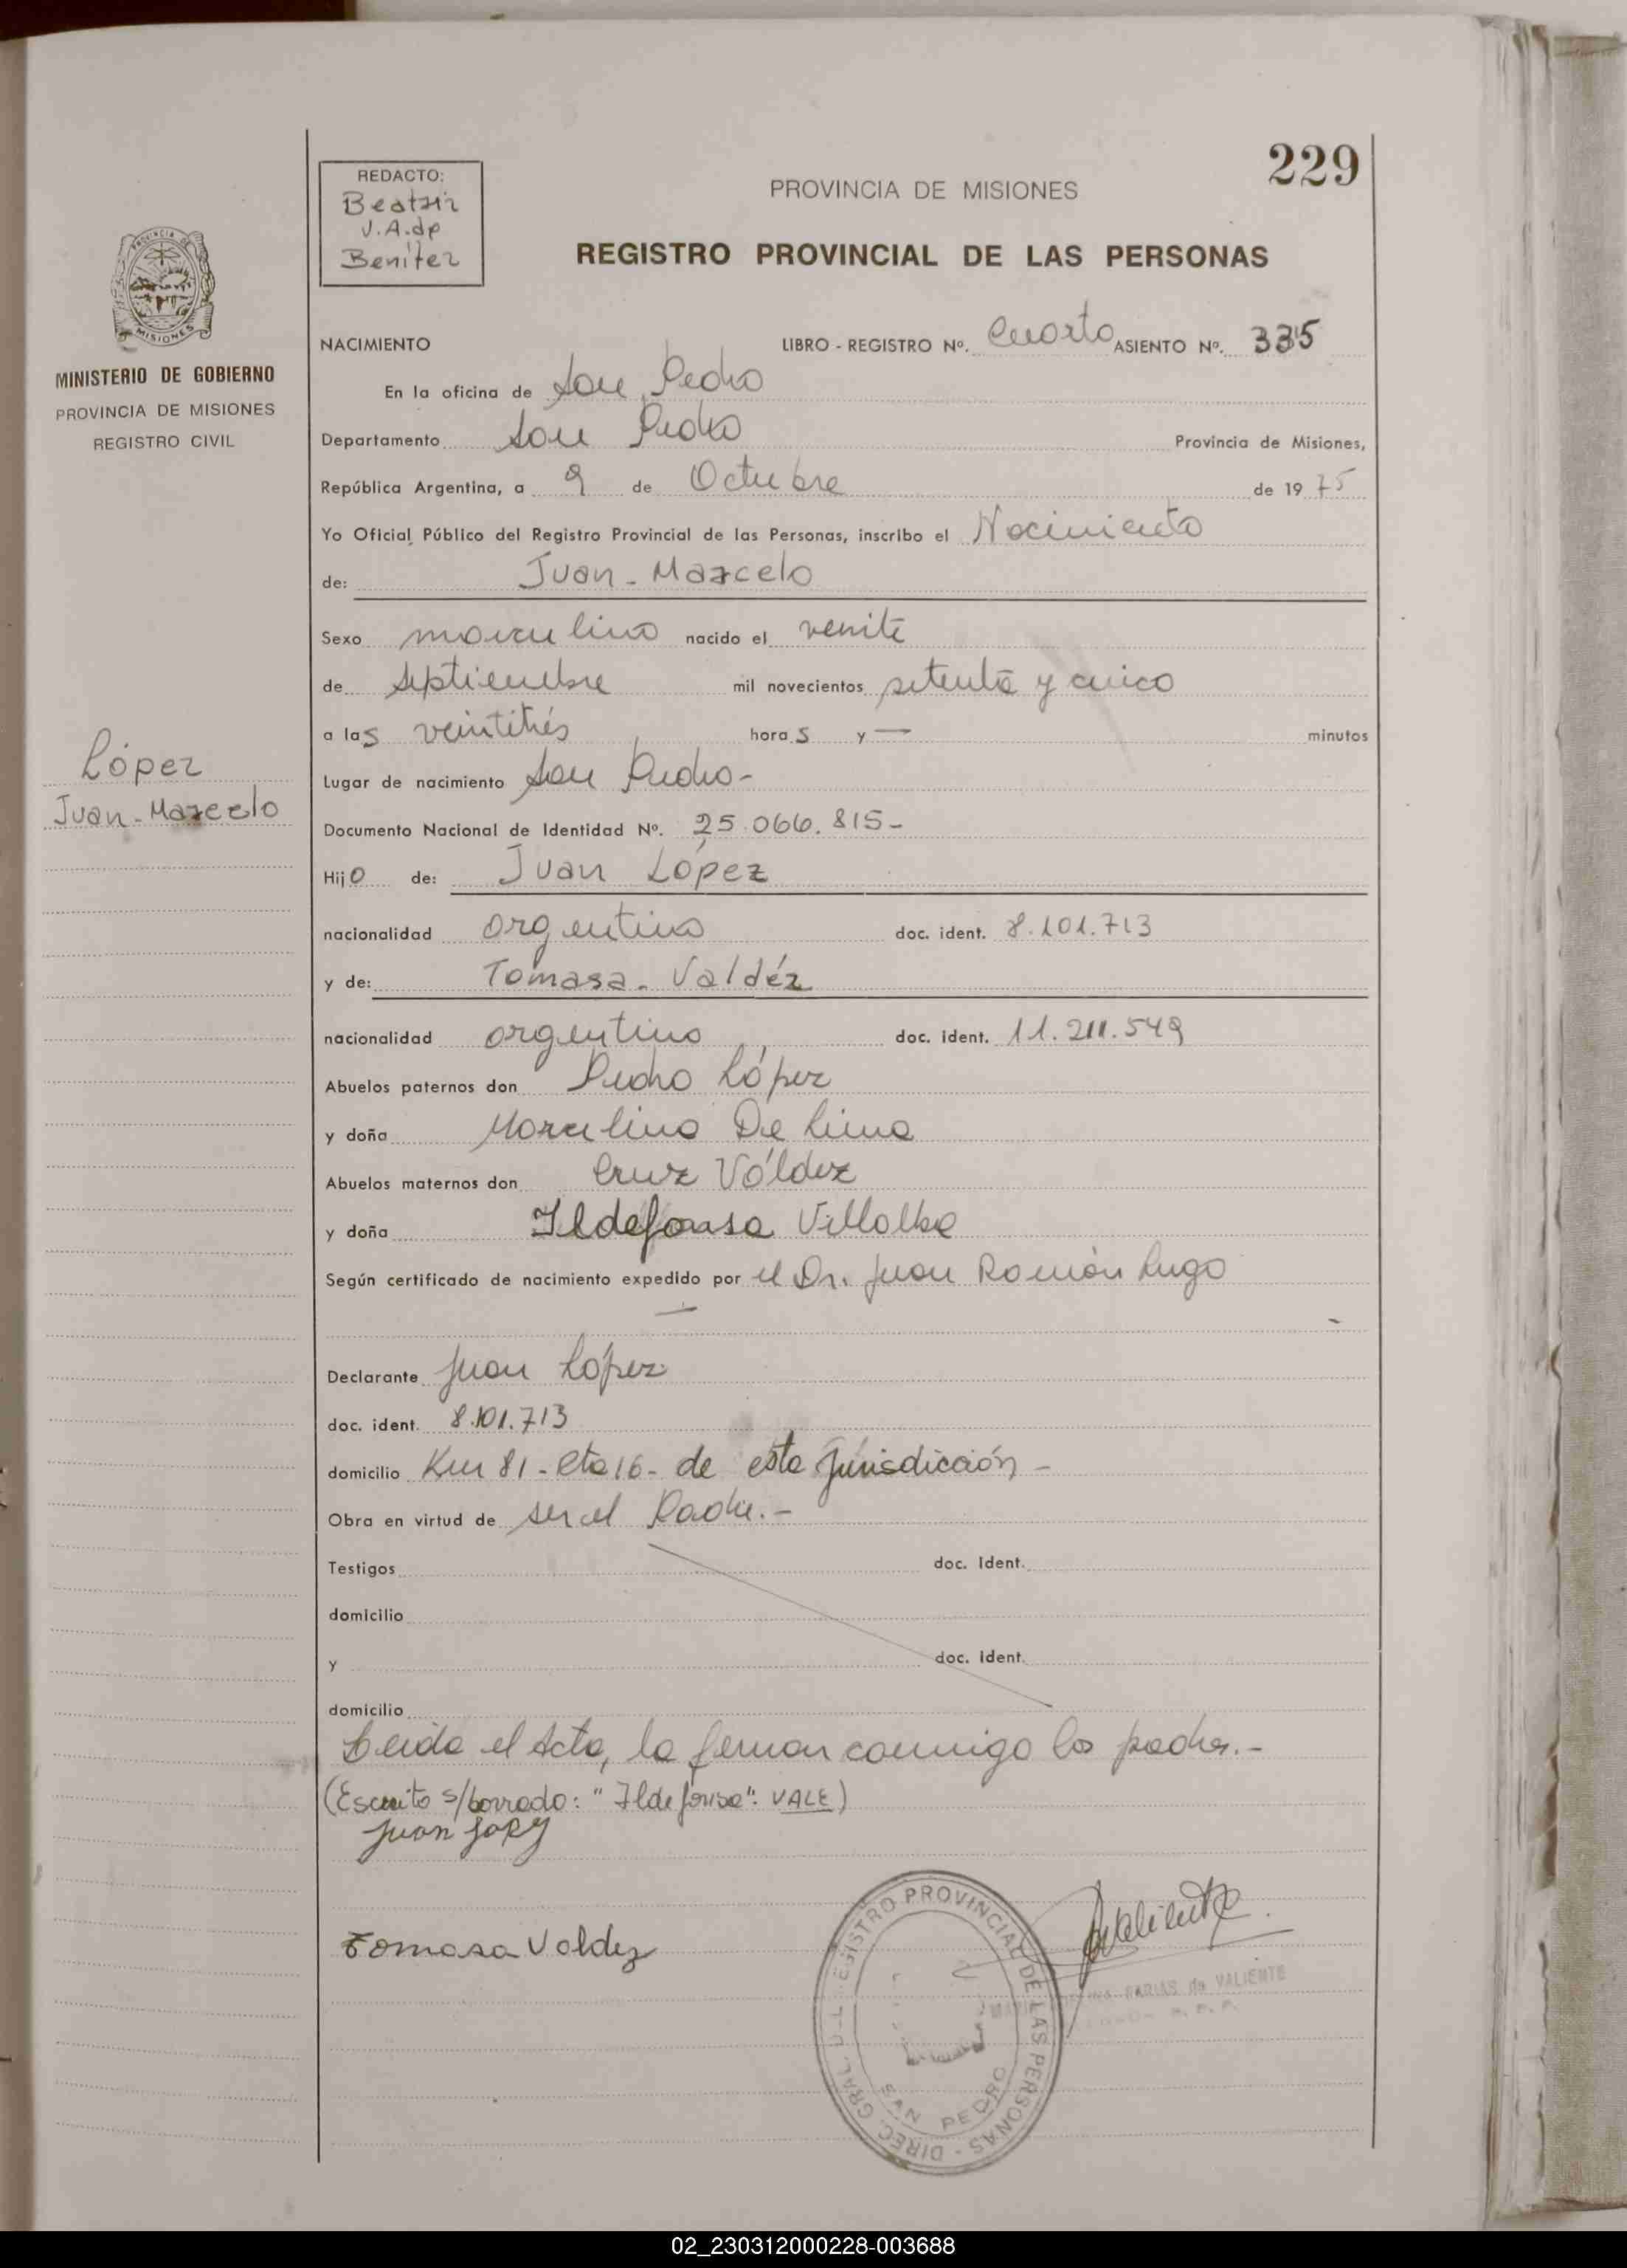 229
REDACTO:
Beatriz
V.A.de
Benítez
PROVINCIA DE MISIONES
REGISTRO PROVINCIAL DE LAS PERSONAS
PROVINCIA DE
MISIONES
MINISTERIO DE GOBIERNO
PROVINCIA DE MISIONES
REGISTRO CIVIL
López
Juan-Marcelo
NACIMIENTO LIBRO - REGISTRO Nº. Cuarto ASIENTO Nº. 335
En la oficina de San Pedro
Departamento San Pedro Provincia de Misiones,
República Argentina, a 9 de Octubre de 1975
Yo Oficial Público del Registro Provincial de las Personas, inscribo el Nacimiento
de: Juan-Marcelo
Sexo masculino nacido el veinte
de septiembre mil novecientos setenta y cinco
a las veintitrés horas y — minutos
Lugar de nacimiento San Pedro-
Documento Nacional de Identidad Nº. 25.066.815-
Hijo de: Juan López
nacionalidad argentino doc. ident. 8.101.713
y de: Tomasa-Valdéz
nacionalidad argentina doc. ident. 11.211.549
Abuelos paternos don Pedro López
y doña Marcelina De Lima
Abuelos maternos don Cruz Váldez
y doña Ildefonsa Villalba
Según certificado de nacimiento expedido por el Dr. Juan Ramón Lugo
—
Declarante Juan López
doc. ident. 8.101.713
domicilio Km 81-Rta 16- de esta Jurisdicción-
Obra en virtud de ser el Padre.-
Testigos doc. Ident.
domicilio
y doc. Ident.
domicilio
Leida el Acta, la firman conmigo los padres.-
(Escrito s/borrado: "Ildefonsa": VALE)
Juan Lopez
Tomasa Valdez
REGISTRO PROVINCIAL DE LAS PERSONAS - DIREC. GRAL. DEL
SAN PEDRO
Valiente
de VALIENTE
02_230312000228-003688